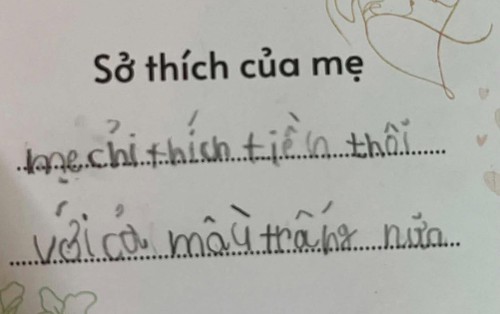 Sở thích của mẹ
mẹ chỉ thích tiền thôi
với cả mầu trắng nữa